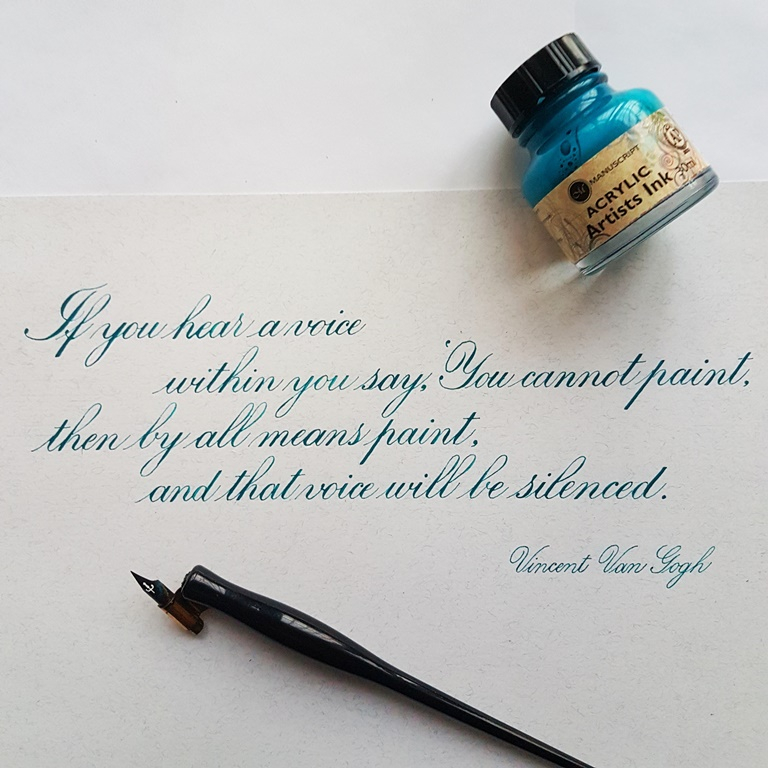 MANUSCRIPT
ACRYLIC
Artists Ink
30ml
If you hear a voice
within you say, 'You cannot paint,
then by all means paint,
and that voice will be silenced.
Vincent Van Gogh